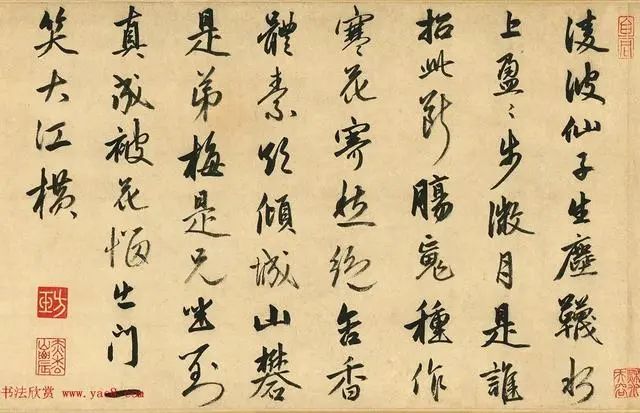 凌波仙子生塵韈水
上盈〻步微月是誰
招此断腸魂種作
寒花寄愁絕含香
體素欲傾城山礬
是弟梅是兄坐對
真成被花惱出門一
笑大江橫
书法欣赏